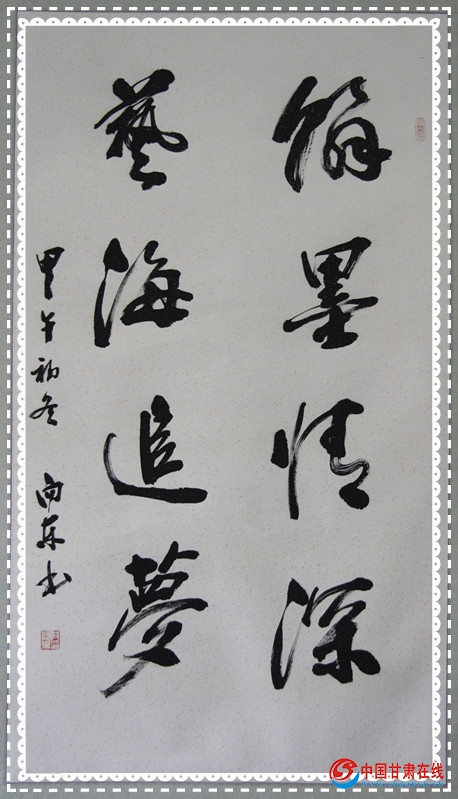 翰墨情深
藝海追夢
甲午初冬 向东书
中国甘肃在线